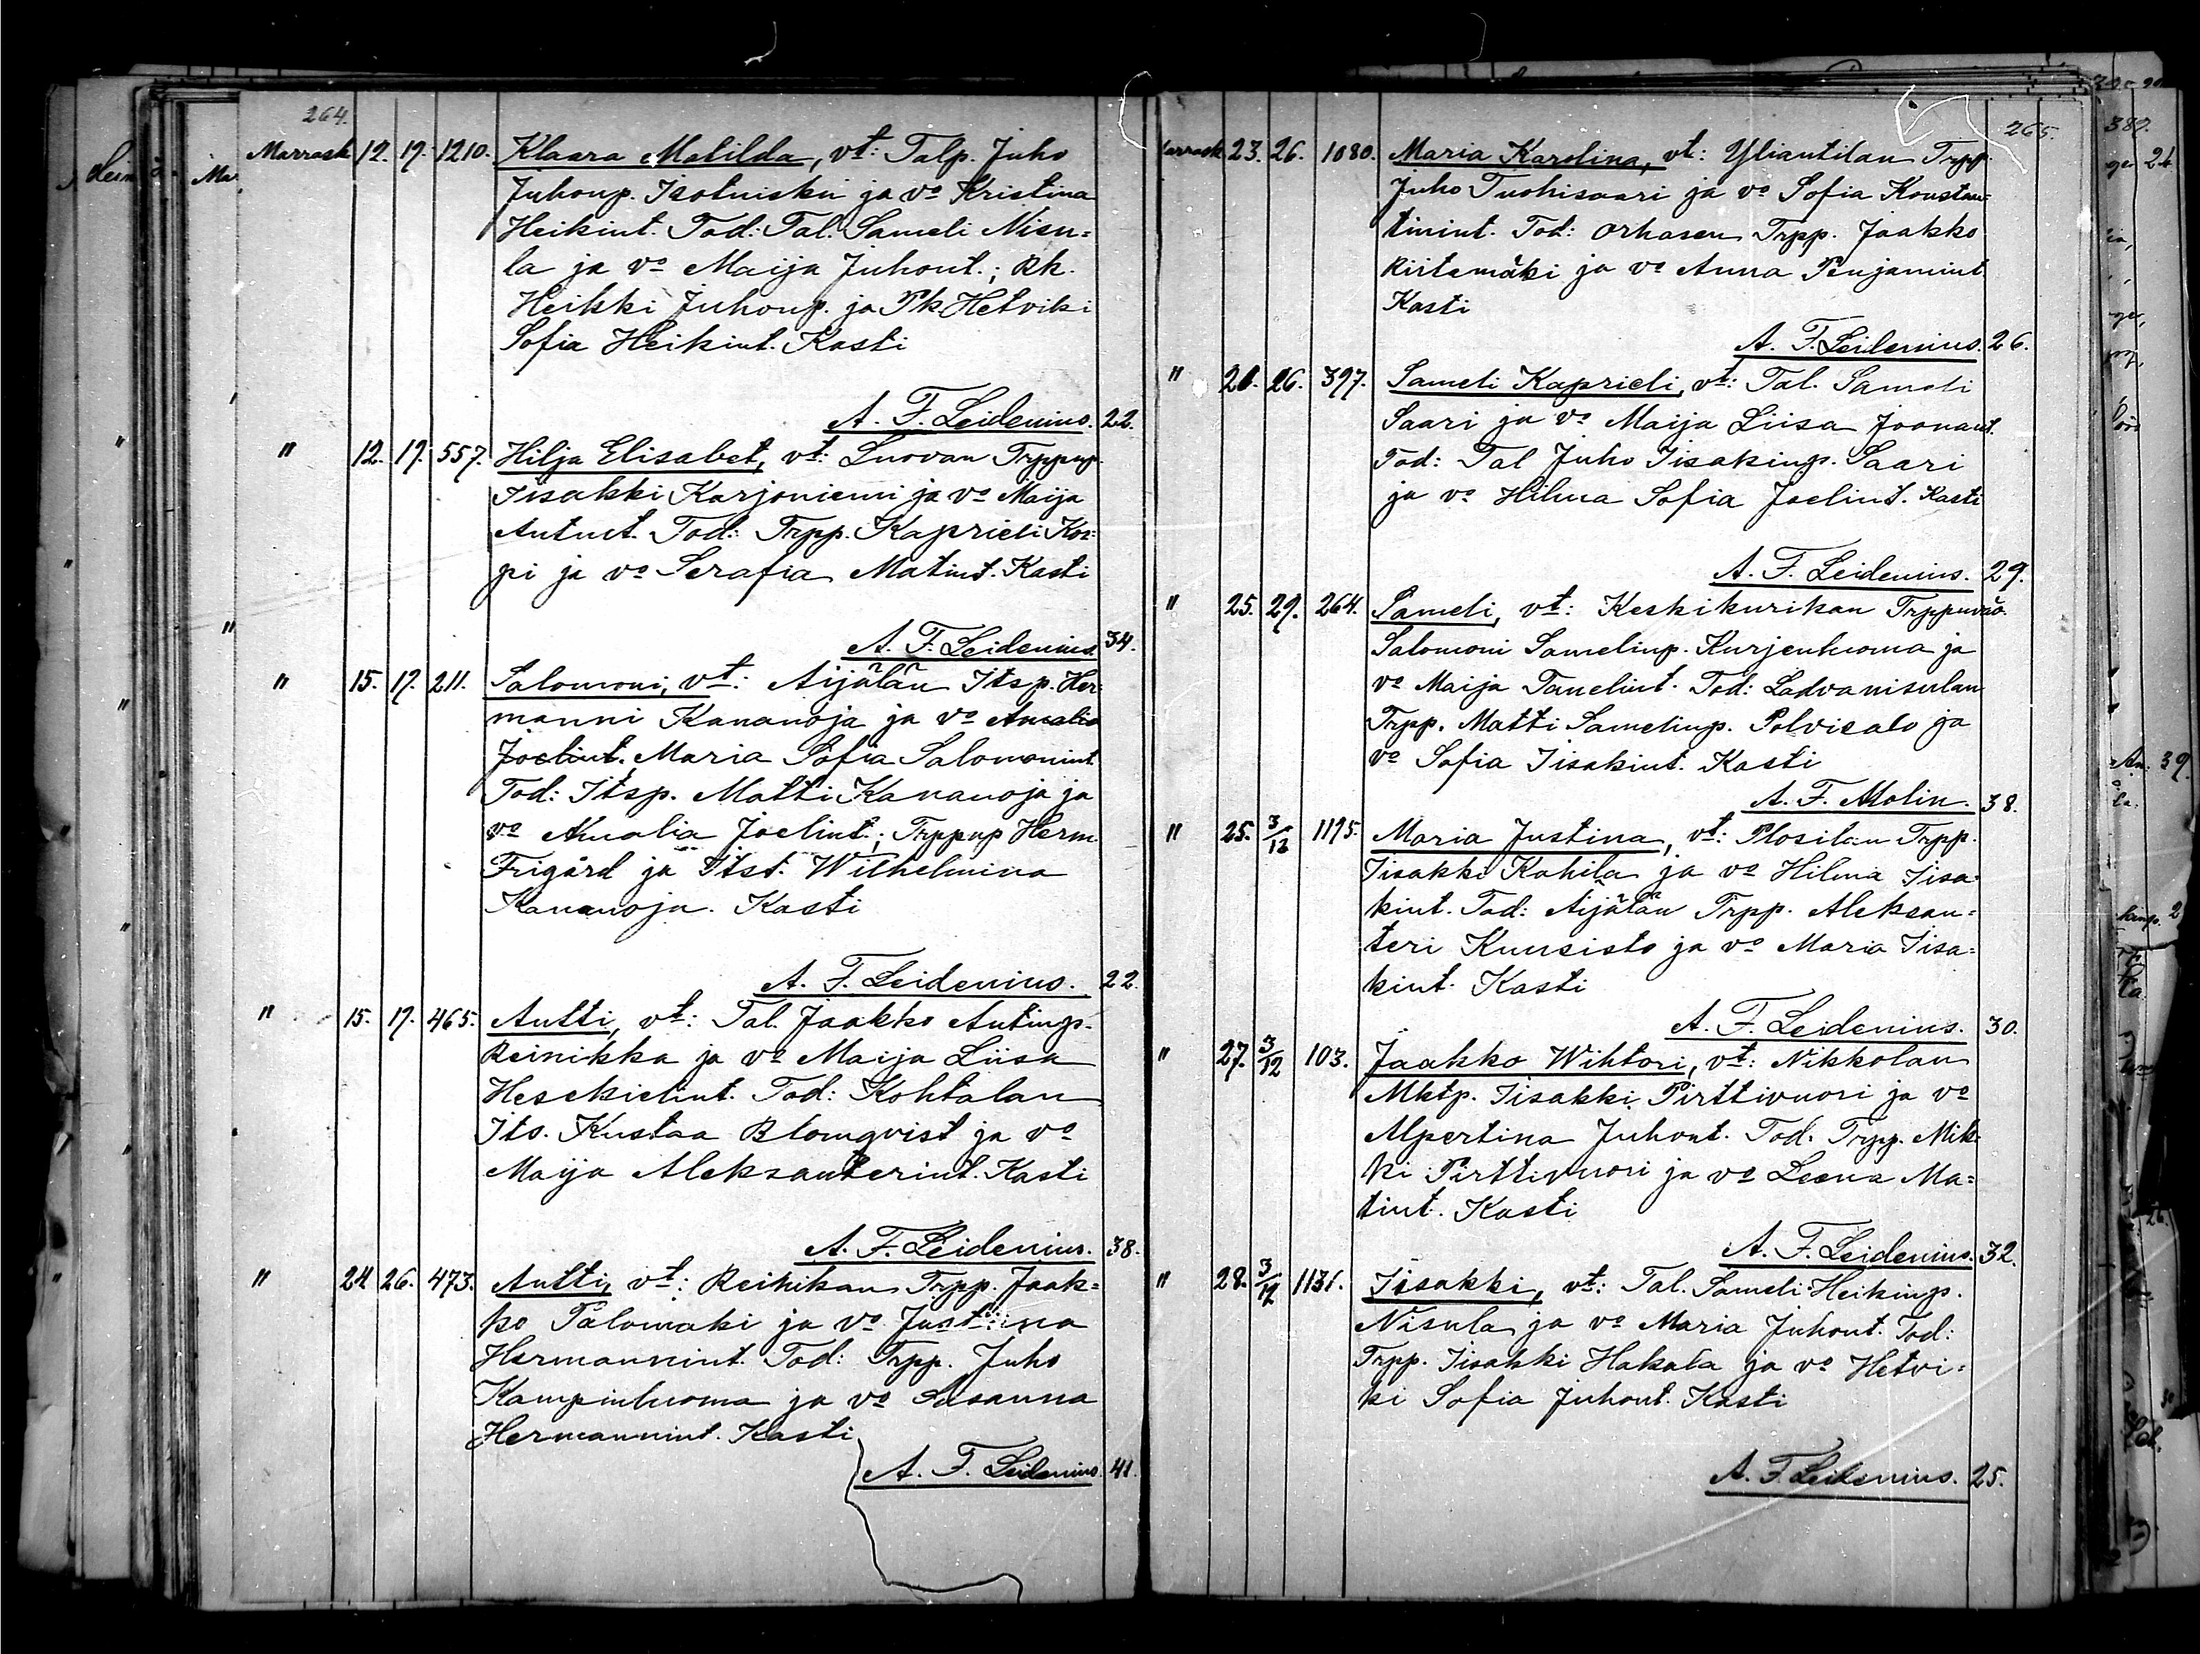 264.
Marrask 12. 17. 1210. Klaara Matilda, vt: Talp. Juho
Juhonp. Isotuisku ja vo Kristina
Heikint. Tod: Tal. Sameli Nisu=
la ja vo Maija Juhont.; Rk.
Heikki Juhonp. ja Pk Hetviki
Sofia Heikint. Kasti
A. F. Leidenius. 22.
" 12. 17. 557. Hilja Elisabet, vt: Luovan Trppup.
Iisakki Karjoniemi ja vo Maija
Antint. Tod: Trpp. Kaprieli Kor=
pi ja vo Serafia Matint. Kasti
A. F. Leidenius 34.
" 15. 17. 211. Salomoni, vt: Äijälän Itsp. Her=
manni Kananoja ja vo Amalia
Joelint. Maria Sofia Salomonint.
Tod: Itsp. Matti Kananoja ja
vo Amalia Joelint.; Trppup Herm.
Frigård ja Itst. Wilhelmina
Kananoja. Kasti
A. F. Leidenius. 22.
" 15. 17. 465. Antti, vt: Tal. Jaakko Antinp.
Reinikka ja vo Maija Liisa
Hesekielint. Tod: Kohtalan
Its. Kustaa Blomqvist ja vo
Maija Aleksanterint. Kasti
A. F. Leidenius. 38.
" 24 26. 473. Antti, vt: Reinikan Trpp. Jaak=
ko Palomäki ja vo Justiina
Hermannint. Tod: Trpp. Juho
Kampinluoma ja vo Susanna
Hermannint. Kasti
A. F. Leidenius. 41.
265.
Marrask 23. 26. 1080. Maria Karolina, vt: Yliantilan Trpp.
Juho Tuohisaari ja vo Sofia Konstan=
tinint. Tod: Orhasen Trpp. Jaakko
Riitamäki ja vo Anna Penjamint.
Kasti
A. F. Leidenius. 26.
" 20. 26. 397. Sameli Kaprieli, vt: Tal. Sameli
Saari ja vo Maija Liisa Joonant.
Tod: Tal Juho Iisakinp. Saari
ja vo Hilma Sofia Joelint. Kasti
A. F. Leidenius. 29.
" 25. 29. 264. Sameli, vt: Keskikurikan Trppuväo.
Salomoni Samelinp. Kurjenluoma ja
vo Maija Tanelint. Tod: Ladvanisulan
Trpp. Matti Samelinp. Polvisalo ja
vo Sofia Iisakint. Kasti
A. F. Molin. 38.
" 25. 3/12 1195. Maria Justina, vt: Plosilan Trpp.
Iisakki Kahila ja vo Hilma Iisa=
kint. Tod: Äijälän Trpp. Aleksan=
teri Kuusisto ja vo Maria Iisa=
kint. Kasti
A. F. Leidenius. 30.
" 27. 3/12 103. Jaakko Wihtori, vt: Nikkolan
Mktp. Iisakki Pirttivuori ja vo
Alpertina Juhont. Tod: Trpp. Mik=
ki Pirttivuori ja vo Leena Ma=
tint. Kasti
A. F. Leidenius. 32.
" 28. 3/12 1131. Iisakki, vt: Tal. Sameli Heikinp.
Nisula ja vo Maria Juhont. Tod:
Trpp. Iisakki Hakala ja vo Hetvi=
ki Sofia Juhont. Kasti
A. F. Leidenius. 25.